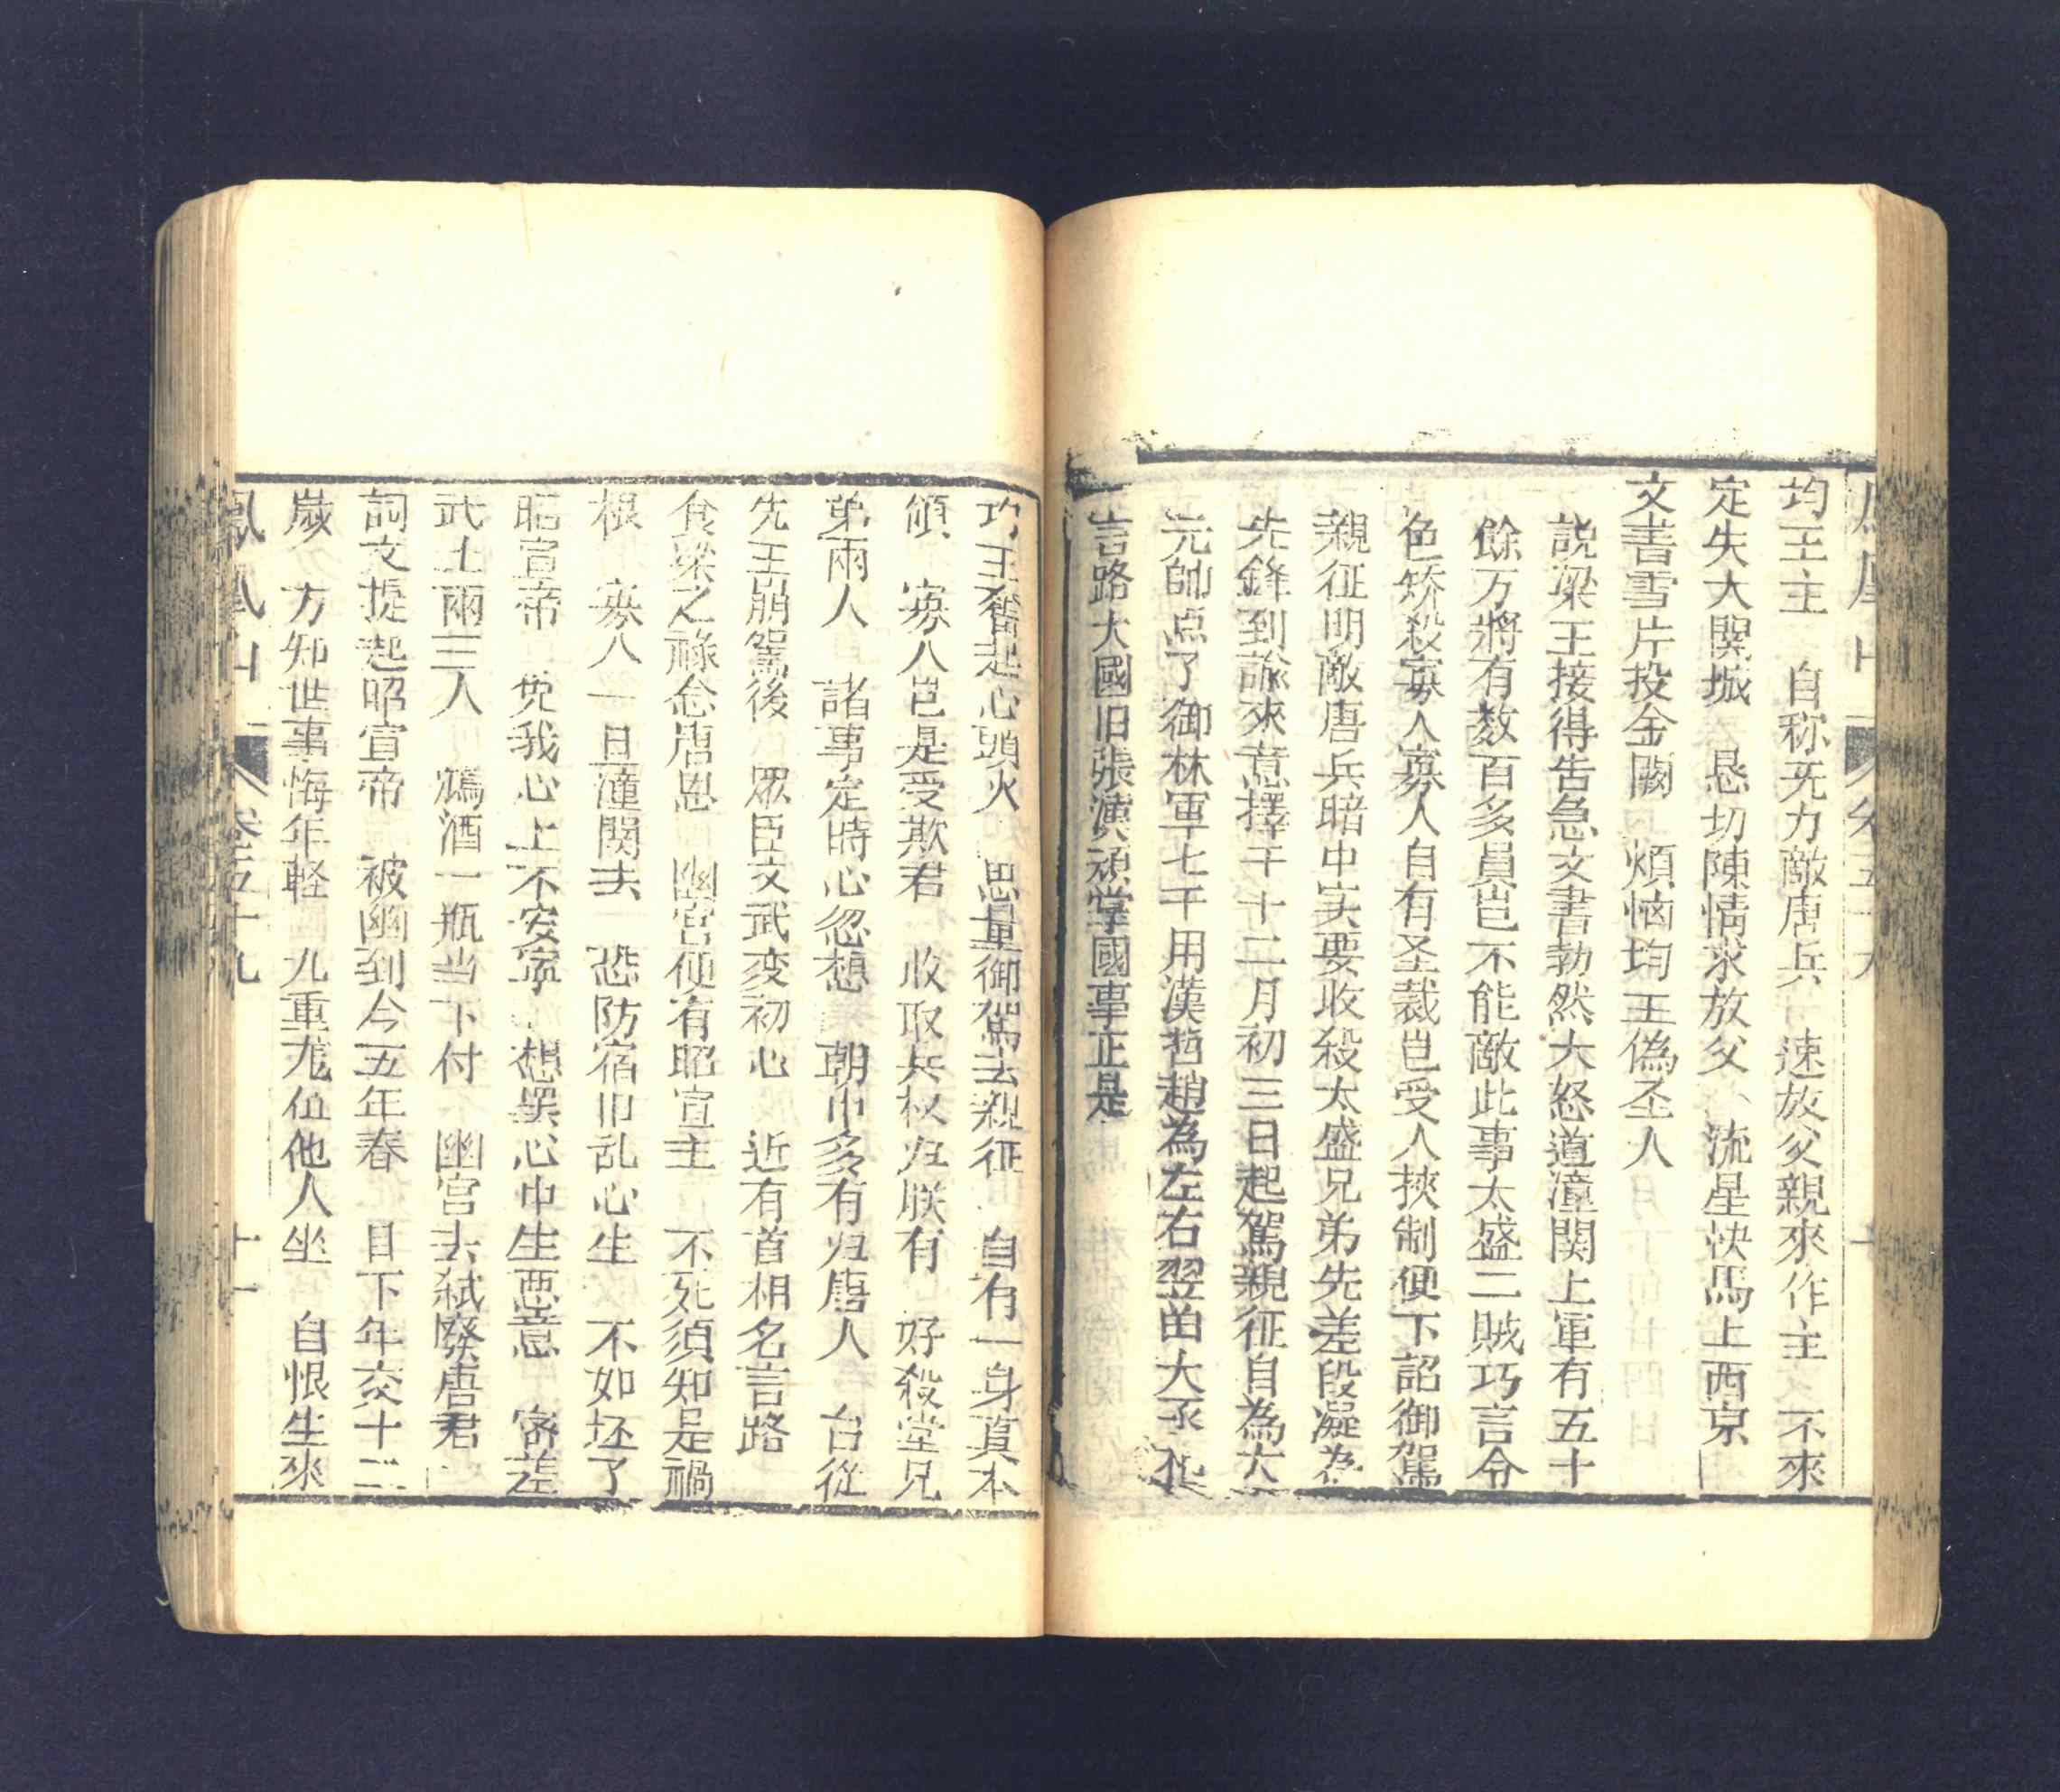 均王主　自称无力敵唐兵　速放父親來作主　不來
定失大関城　恳切陳情求放父　流星快馬上西京
文書雪片投金闕　煩惱均王偽圣人
説梁王接得告急文書勃然大怒道潼関上軍有五十
餘万將有数百多員岂不能敵此事太盛二賊巧言令
色矫殺寡人寡人自有圣裁岂受人挾制便下詔御駕
親征明敵唐兵暗中实要收殺太盛兄弟先差段凝為
先鋒到諭來意擇于十二月初三日起駕親征自為大
元帥点了御林軍七千用漢哲趙為左右翌由大丞相
言路大國旧張漢頑掌國事正是
均王番起心頭火　思量御駕去親征　自有一身真本
領　寡人岂是受欺君　收取兵权归朕有　好殺堂兄
弟兩人　諸事定時心忽想　朝中多有归唐人　台從
先王崩駕後　眾臣文武变初心　近有首相名言路
食梁之祿念唐恩　幽宮便有昭宣主　不死須知是禍
根　寡人一旦潼関去　恐防宿旧乱心生　不如坯了
昭宣帝　免我心上不安寧　想罢心中生悪意　密差
武士兩三人　鴆酒一瓶当下付　幽宮去弑廢唐君
詞文提起昭宣帝　被幽到今五年春　目下年交十二
歲　方知世事悔年軽　九重尨位他人坐　自恨生來
鳳凰山　卷五十九　十一